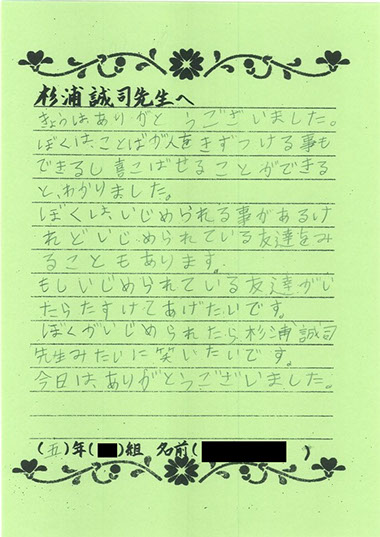 杉浦誠司先生へ
きょうはありがとうございました。
ぼくは、ことばが人をきずつける事も
できるし喜こばせることができる
と、わかりました。
ぼくは、いじめられる事があるけ
れどいじめられている友達をみ
ることもあります。
もしいじめられている友達がい
たらたすけてあげたいです。
ぼくがいじめられたら杉浦誠司
先生みたいに笑いたいです。
今日は、ありがとうございました。
(五)年( )組 名前( )